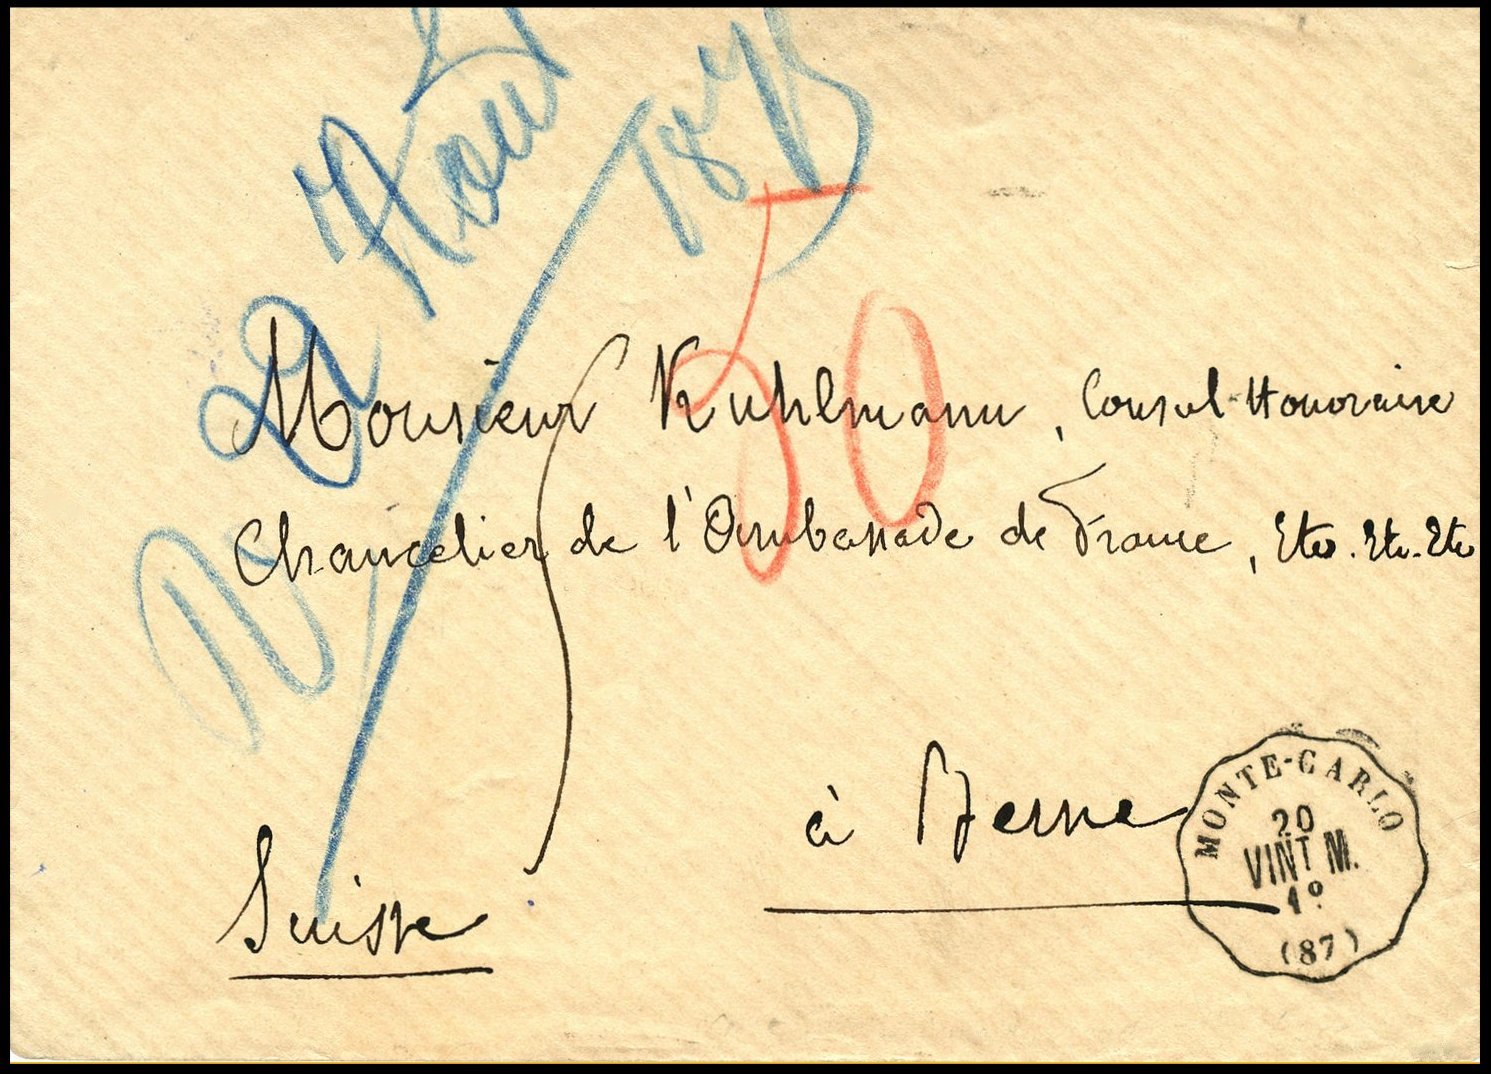 50
Monsieur Kuhlmann, Consul-Honoraire
Chancelier de l'Ambassade de France, Etc. Etc. Etc
à Berne
Suisse
MONTE-CARLO
20
VINT M.
1º
(87)